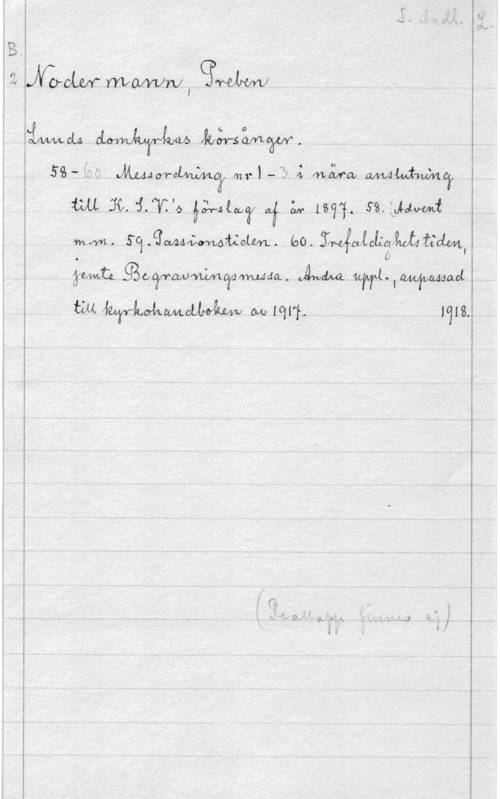 S. Andl. L.
B.
2 Nodermann, Preben
Lunds domkyrkas körsånger.
58-60 Messordning nr 1-3 i nära anslutning
till K. F. V:s förslag af år 1897. 58. Advent
m.m. 59. Passionstiden. 60. Trefaldighetstiden,
jemte Begravningsmessa. Andra uppl., anpassad
till kyrkohandboken av 1917. 1918.
finnes ej)